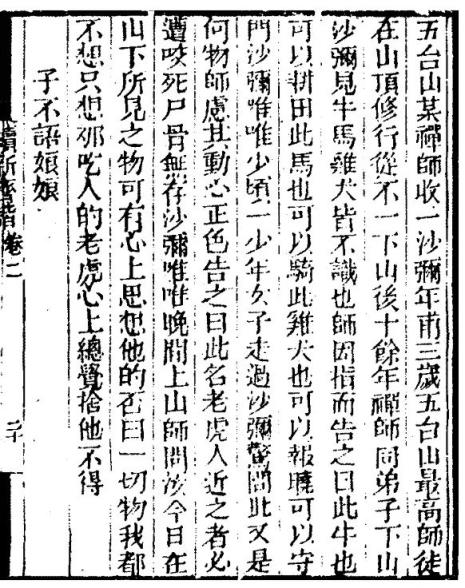 五台山某禪師收一沙彌年甫三歲五台山最高師徒
在山頂修行從不一下山後十餘年禪師同弟子下山
沙彌見牛馬雞犬皆不識也師因指而告之曰此牛也
可以耕田此馬也可以騎此雞犬也可以報曉可以守
門沙彌唯唯少頃一少年女子走過沙彌驚問此又是
何物師慮其動心正色告之曰此名老虎人近之者必
遭咬死尸骨無存沙彌唯唯晚間上山師問汝今日在
山下所見之物可有心上思想他的否曰一切物我都
不想只想那吃人的老虎心上總覺捨他不得
子不語娘娘
續新齊諧卷二
二十